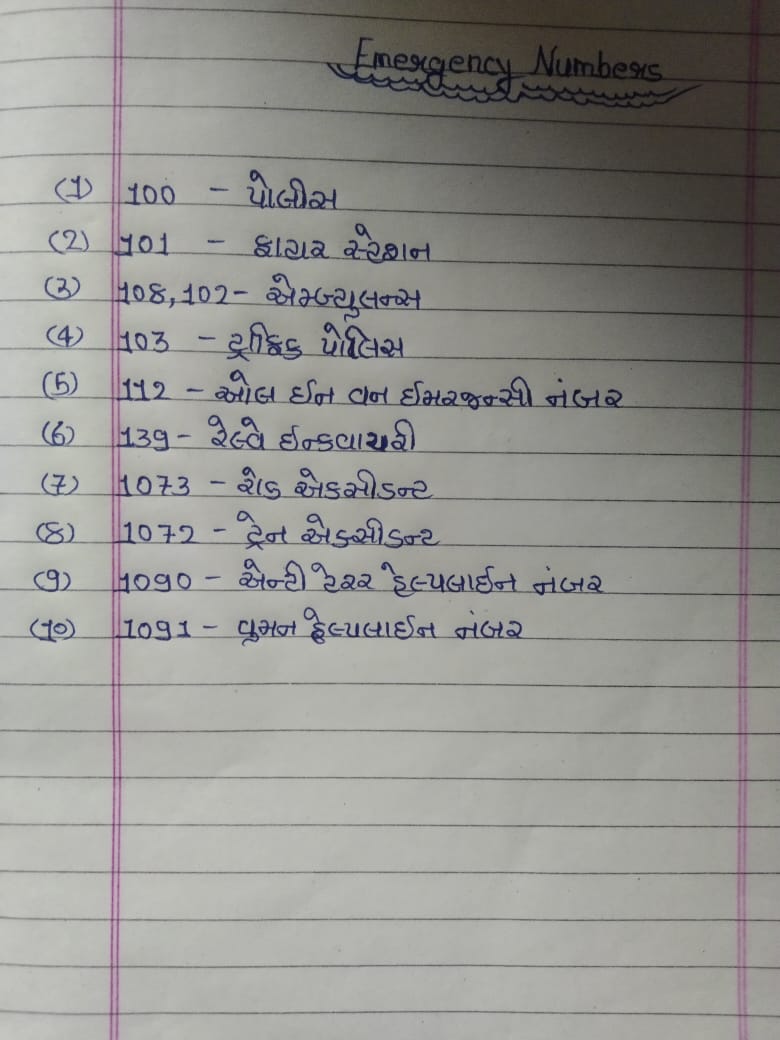 Emergency Numbers
(1) 100 - પોલીસ
(2) 101 - ફાયર સ્ટેશન
(3) 108, 102 - એમ્બ્યુલન્સ
(4) 103 - ટ્રાફિક પોલિસ
(5) 112 - ઓલ ઈન વન ઈમરજન્સી નંબર
(6) 139 - રેલ્વે ઈન્કવાયરી
(7) 1073 - રોડ એકસીડન્ટ
(8) 1072 - ટ્રેન એકસીડન્ટ
(9) 1090 - એન્ટી ટેરર હેલ્પલાઈન નંબર
(10) 1091 - વુમન હેલ્પલાઈન નંબર